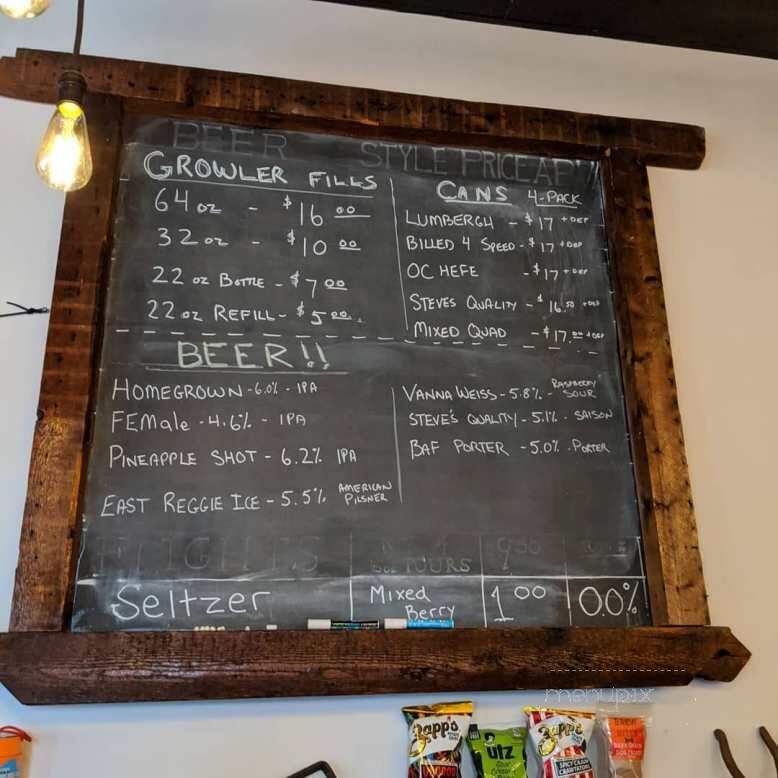 BEER STYLE PRICE
GROWLER FILLS
64 oz - $16 00
32 oz - $10 00
22 oz BOTTLE - $7 00
22 oz REFILL - $5 00
CANS 4-PACK
LUMBERGH - $17 + DEP
BILLED 4 SPEED - $17 + DEP
OC HEFE - $17 + DEP
STEVES QUALITY - $16.50 + DEP
MIXED QUAD - $17.00 + DEP
BEER!!
HOMEGROWN - 6.0% - IPA
FEMale - 4.6% - IPA
PINEAPPLE SHOT - 6.2% IPA
EAST REGGIE ICE - 5.5% AMERICAN PILSNER
VANNA WEISS - 5.8% - RASPBERRY SOUR
STEVE'S QUALITY - 5.1% - SAISON
BAF PORTER - 5.0% - PORTER
FLIGHTS
POURS
Seltzer Mixed Berry 1 00 0.0%
menupix
Zapp's
utz
Zapp's
SPICY CAJUN CRAWTATORS